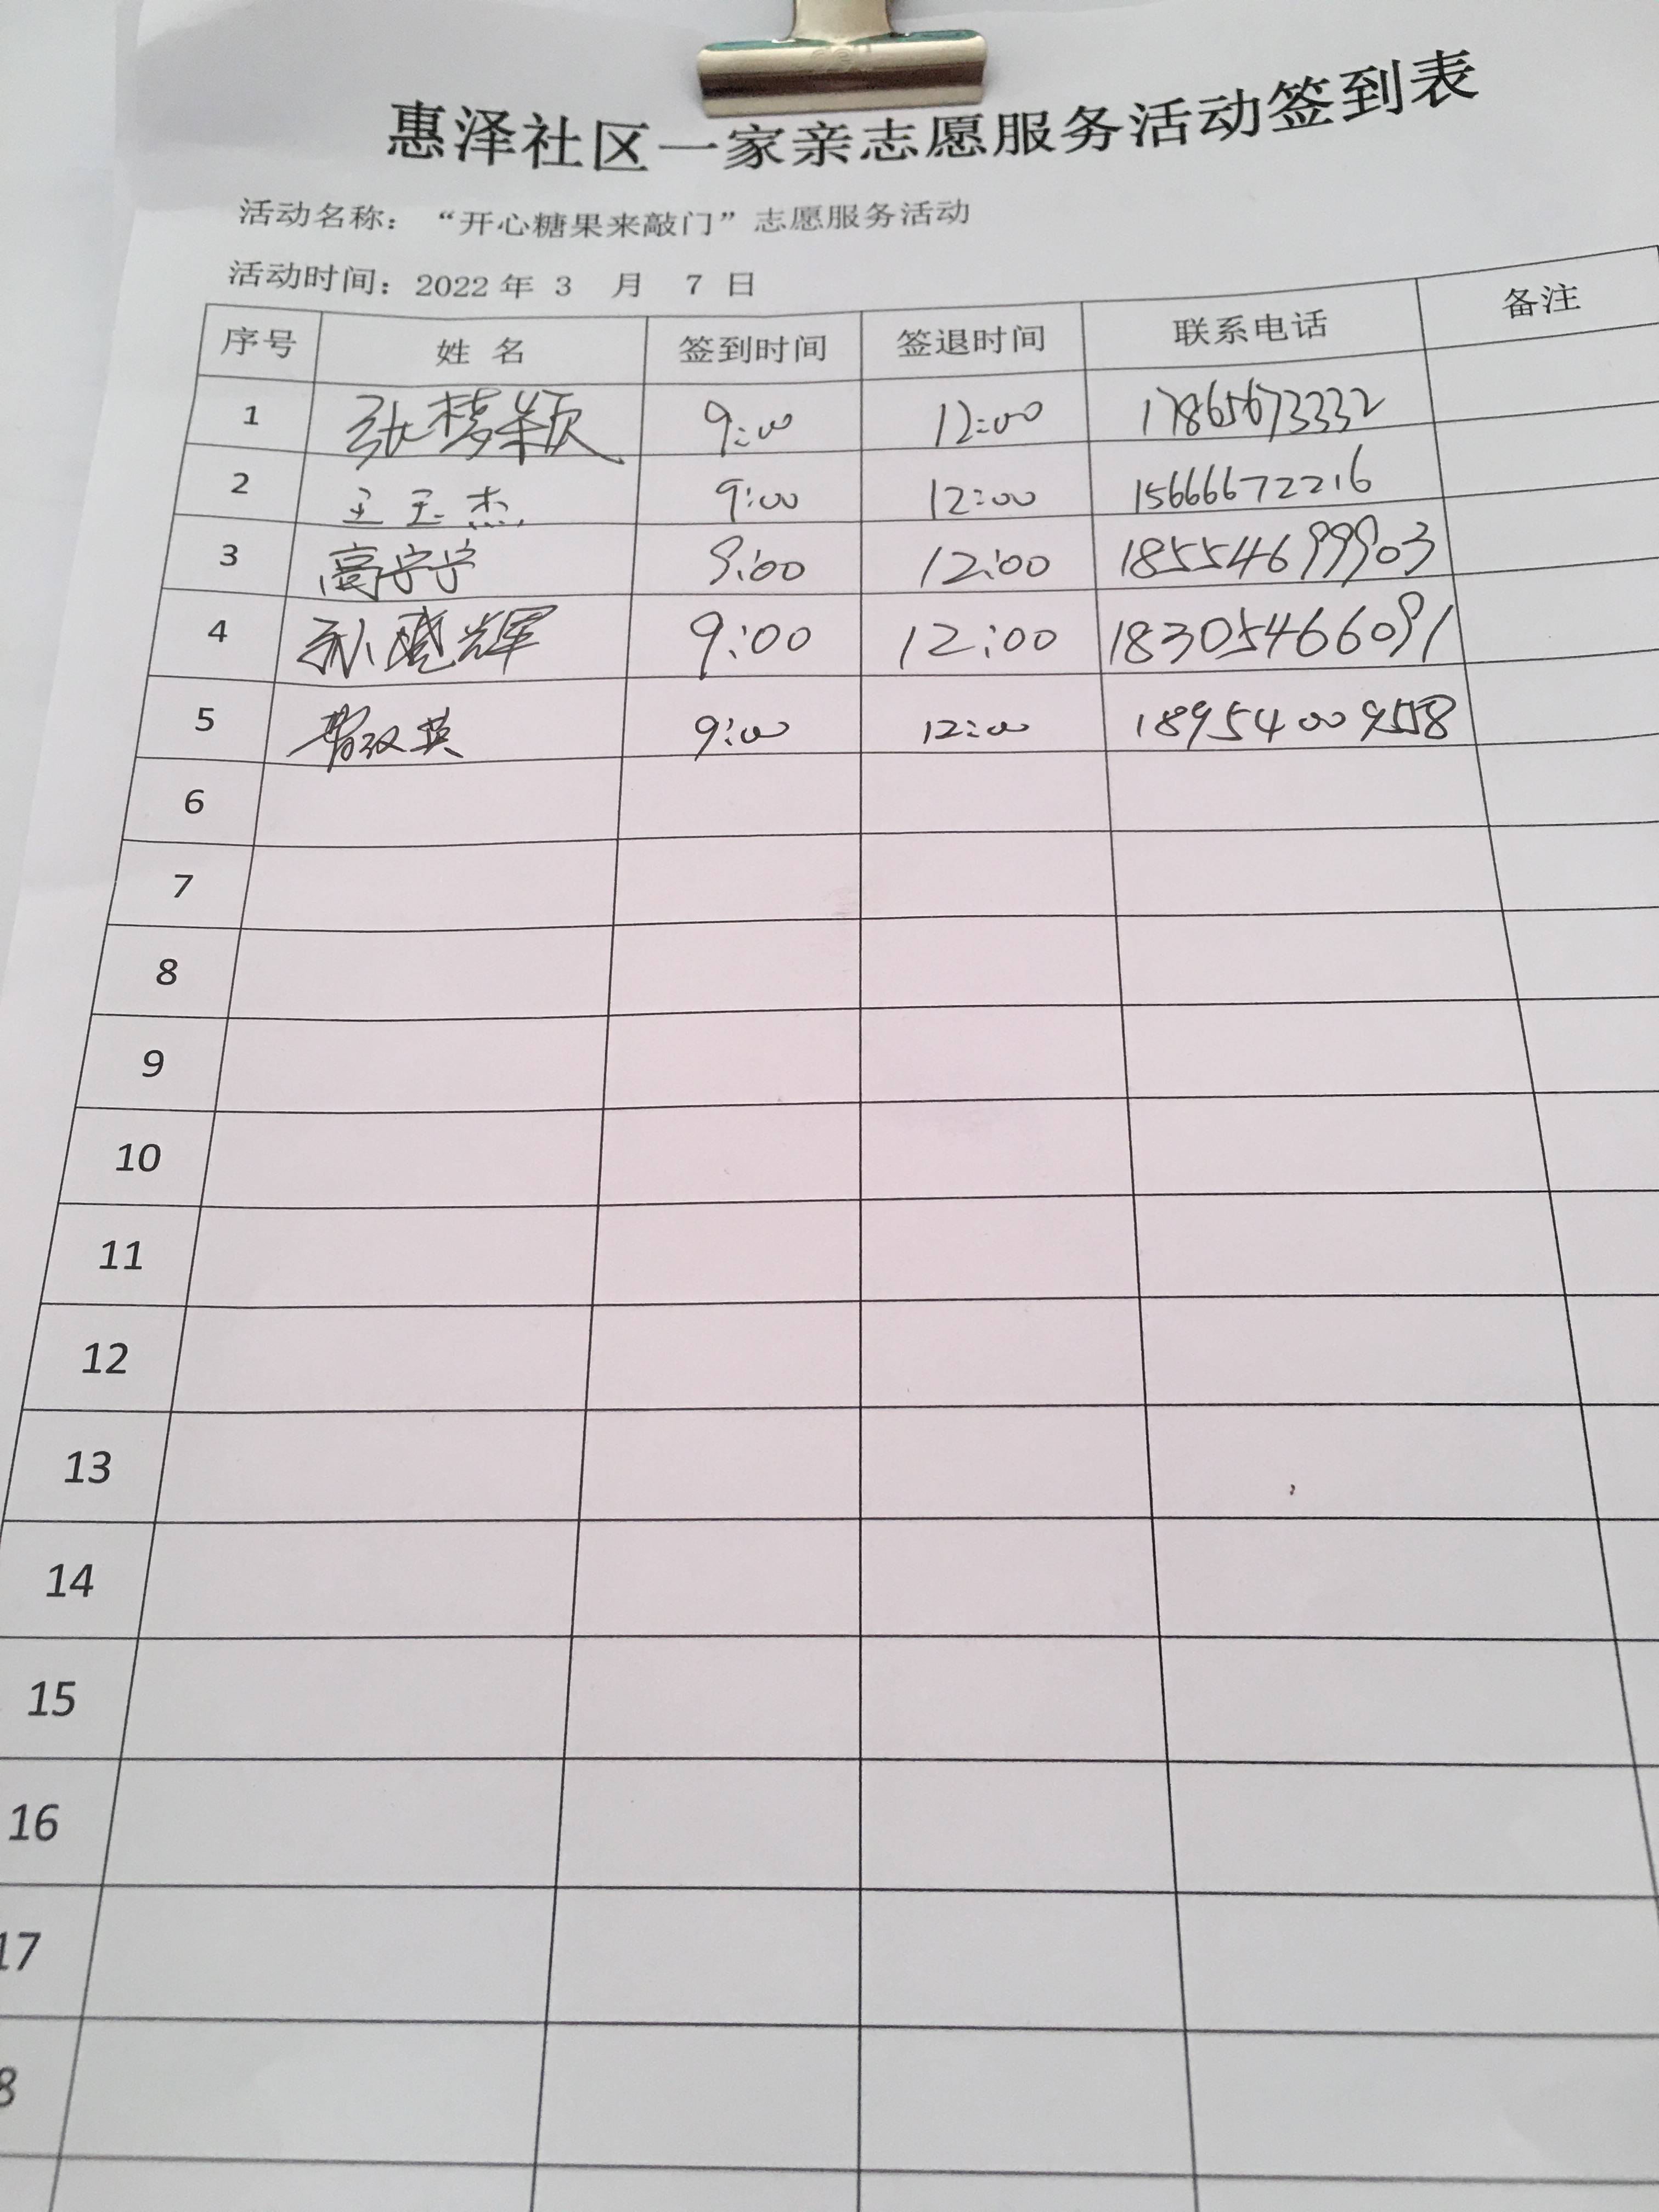 惠泽社区一家亲志愿服务活动签到表
活动名称：“开心糖果来敲门”志愿服务活动
活动时间：2022 年 3 月 7 日
序号 姓 名 签到时间 签退时间 联系电话 备注
1 张梦颖 9:00 12:00 17865673332
2 王玉杰 9:00 12:00 15666672216
3 高宁宁 9:00 12:00 18554699903
4 孙晓辉 9:00 12:00 18305466091
5 9:00 12:00 18954009558
6
7
8
9
10
11
12
13
14
15
16
17
8